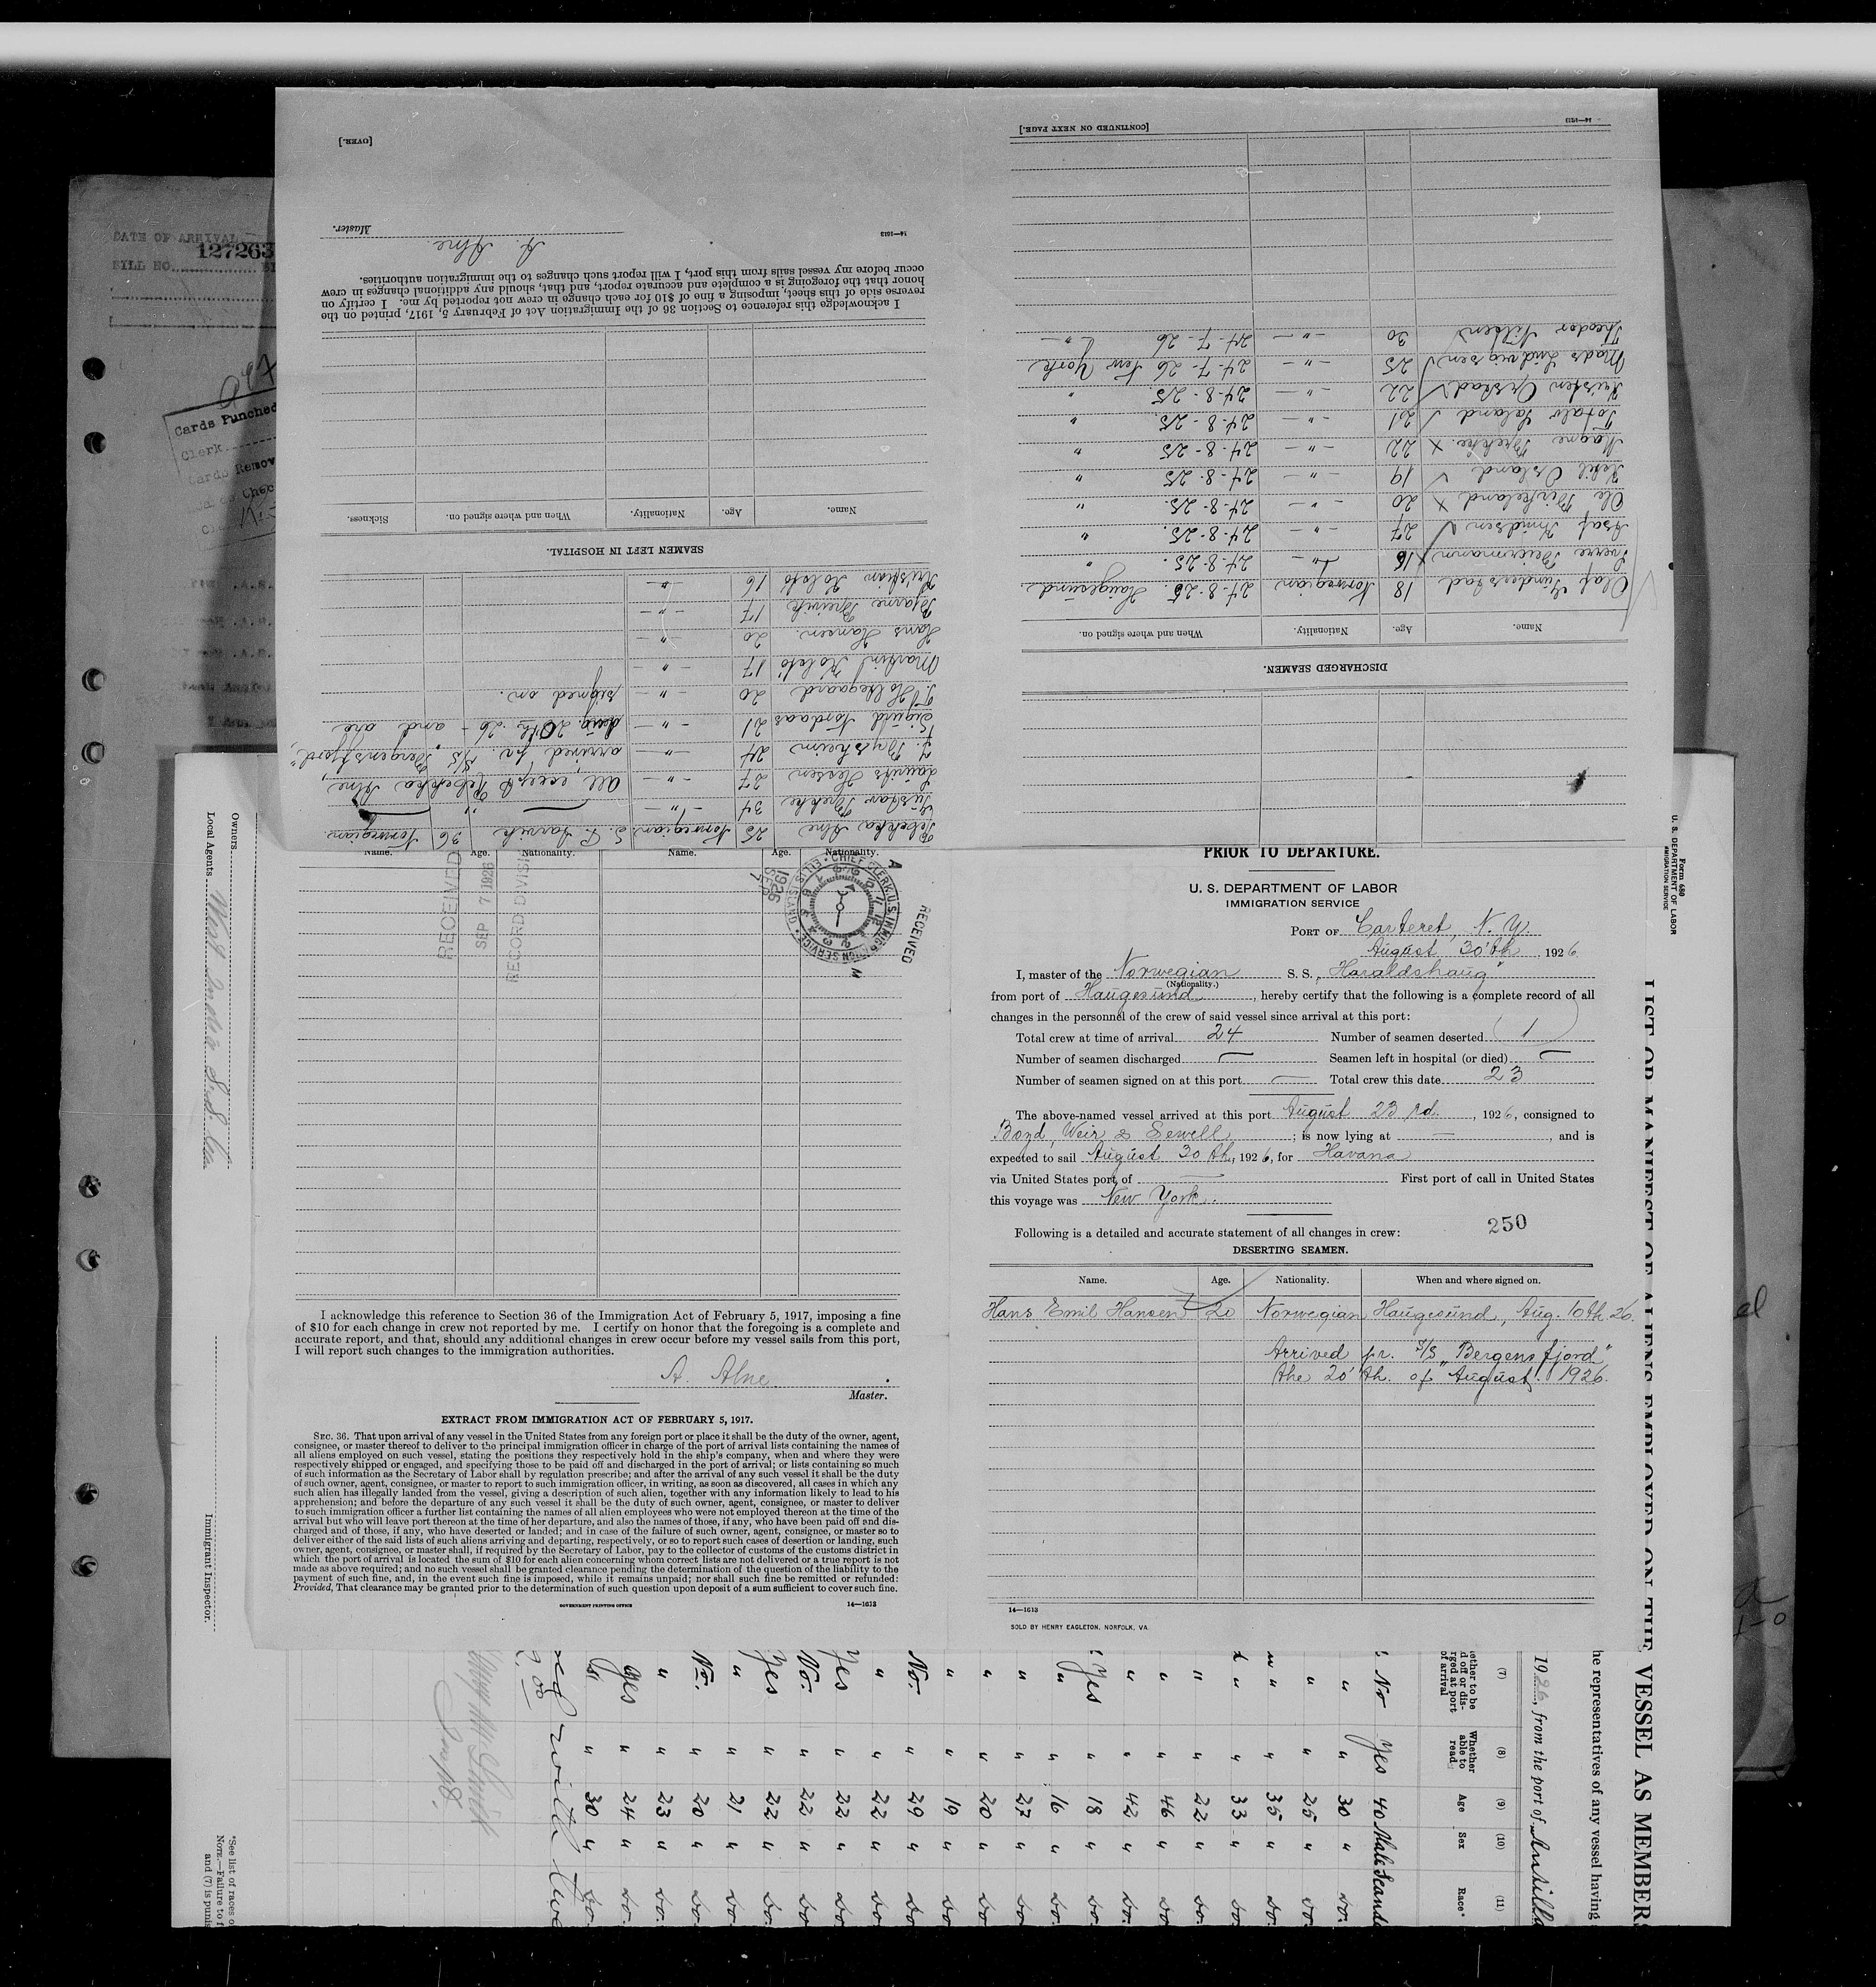 [CONTINUED ON NEXT PAGE.]
14—1613
DISCHARGED SEAMEN.
Name. Age. Nationality. When and where signed on.
Olaf Gunderstad 18 Norwegian 24-8-25. Haugesund
Sverre Beiermann 16 -"- 24-8-25. "
Asaf Knudsen 27 -"- 24-8-25. "
Ole Birkeland 20 -"- 24-8-25. "
Ketil Osland 19 -"- 24-8-25 "
Magne Brekke 22 -"- 24-8-25 "
Tofalv Søland 21 -"- 24-8-25. "
Kristen Opstad 22 -"- 24-8-25. "
Mads Ludvigsen 25 -"- 24-7-26 New York
Theodor Nilsen 30 -"- 24-7-26 -"-
[OVER.]
Rebekka Alne 25 Norwegian S. P. Larvik 36 Norwegian
Gustav Brekke 34 -"-
Laurits Hessen 27 -"- All, except Rebekka Alne,
J. Bytsheim 24 -"- arrived pr. S/S "Bergensfjord",
Sigurd Nordaas 21 -"- Aug. 20th. 26 - and are
T. Holsegaard 20 -"- signed on.
Martin Kolstø 17 -"-
Hans Hansen. 20 -"-
Bjarne Breivik 17 -"-
Kristian Kolstø 16 -"-
SEAMEN LEFT IN HOSPITAL.
Name. Age. Nationality. When and where signed on. Sickness.
I acknowledge this reference to Section 36 of the Immigration Act of February 5, 1917, printed on the
reverse side of this sheet, imposing a fine of $10 for each change in crew not reported by me. I certify on
honor that the foregoing is a complete and accurate report, and that, should any additional changes in crew
occur before my vessel sails from this port, I will report such changes to the immigration authorities.
A. Alne.
14—1613
Master.
DATE OF ARRIVAL
127263
BILL NO.
Cards Punched
Clerk
Cards Remov
Name. Age. Nationality. Name. Age. Nationality.
RECEIVED
SEP 7 1926
RECORD DIVISI
RECEIVED
CHIEF CLERK U.S. IMMIGRATION SERVICE
ELLIS ISLAND
1926
SEP 7
I acknowledge this reference to Section 36 of the Immigration Act of February 5, 1917, imposing a fine
of $10 for each change in crew not reported by me. I certify on honor that the foregoing is a complete and
accurate report, and that, should any additional changes in crew occur before my vessel sails from this port,
I will report such changes to the immigration authorities.
A. Alne.
Master.
EXTRACT FROM IMMIGRATION ACT OF FEBRUARY 5, 1917.
SEC. 36. That upon arrival of any vessel in the United States from any foreign port or place it shall be the duty of the owner, agent,
consignee, or master thereof to deliver to the principal immigration officer in charge of the port of arrival lists containing the names of
all aliens employed on such vessel, stating the positions they respectively hold in the ship's company, when and where they were
respectively shipped or engaged, and specifying those to be paid off and discharged in the port of arrival; or lists containing so much
of such information as the Secretary of Labor shall by regulation prescribe; and after the arrival of any such vessel it shall be the duty
of such owner, agent, consignee, or master to report to such immigration officer, in writing, as soon as discovered, all cases in which any
such alien has illegally landed from the vessel, giving a description of such alien, together with any information likely to lead to his
apprehension; and before the departure of any such vessel it shall be the duty of such owner, agent, consignee, or master to deliver
to such immigration officer a further list containing the names of all alien employees who were not employed thereon at the time of the
arrival but who will leave port thereon at the time of her departure, and also the names of those, if any, who have been paid off and dis-
charged and of those, if any, who have deserted or landed; and in case of the failure of such owner, agent, consignee, or master so to
deliver either of the said lists of such aliens arriving and departing, respectively, or so to report such cases of desertion or landing, such
owner, agent, consignee, or master shall, if required by the Secretary of Labor, pay to the collector of customs of the customs district in
which the port of arrival is located the sum of $10 for each alien concerning whom correct lists are not delivered or a true report is not
made as above required; and no such vessel shall be granted clearance pending the determination of the question of the liability to the
payment of such fine, and, in the event such fine is imposed, while it remains unpaid; nor shall such fine be remitted or refunded:
Provided, That clearance may be granted prior to the determination of such question upon deposit of a sum sufficient to cover such fine.
GOVERNMENT PRINTING OFFICE
14—1613
PRIOR TO DEPARTURE.
U. S. DEPARTMENT OF LABOR
IMMIGRATION SERVICE
PORT OF Carteret, N. Y.
August 30'th, 1926
I, master of the Norwegian S. S. "Haraldshaug"
(Nationality.)
from port of Haugesund, hereby certify that the following is a complete record of all
changes in the personnel of the crew of said vessel since arrival at this port:
Total crew at time of arrival 24 Number of seamen deserted 1
Number of seamen discharged — Seamen left in hospital (or died) —
Number of seamen signed on at this port — Total crew this date 23
The above-named vessel arrived at this port August 23 rd., 1926, consigned to
Boyd, Weir & Sewell; is now lying at —, and is
expected to sail August 30 th, 1926, for Havana
via United States port of — First port of call in United States
this voyage was New York.
250
Following is a detailed and accurate statement of all changes in crew:
DESERTING SEAMEN.
Name. Age. Nationality. When and where signed on.
Hans Emil Hansen 20 Norwegian Haugesund, Aug. 10th. 26.
Arrived pr. S/S "Bergensfjord"
the 20'th. of August. 1926.
14—1613
SOLD BY HENRY EAGLETON, NORFOLK, VA.
Form 680
U. S. DEPARTMENT OF LABOR
IMMIGRATION SERVICE
LIST OR MANIFEST OF ALIENS EMPLOYED ON THE VESSEL AS MEMBERS
he representatives of any vessel having
1926, from the port of Antilla
(7) (8) (9) (10) (11)
ether to be
d off or dis-
rged at port
of arrival
Whether
able to
read
Age
Sex
Race*
No Yes 40 Male Scand
" " 30 " do.
" " 25 " do.
" " 35 " do.
" " 33 " do.
" " 22 " do.
" " 46 " do
" " 42 " do
Yes " 18 " do.
" " 16 " do
" " 27 " do
" " 20 " do
" " 19 " do
No. " 29 " do.
" " 22 " do
Yes " 22 " do.
No. " 22 " do.
Yes " 22 " do.
" " 21 " do.
No. " 20 " do.
" " 23 " do.
Yes " 24 " do.
" 30 " do.
Owners
Local Agents West India S.S. Co.
Immigrant Inspector.
*See list of races o
NOTE.—Failure to f
and (7) is punis